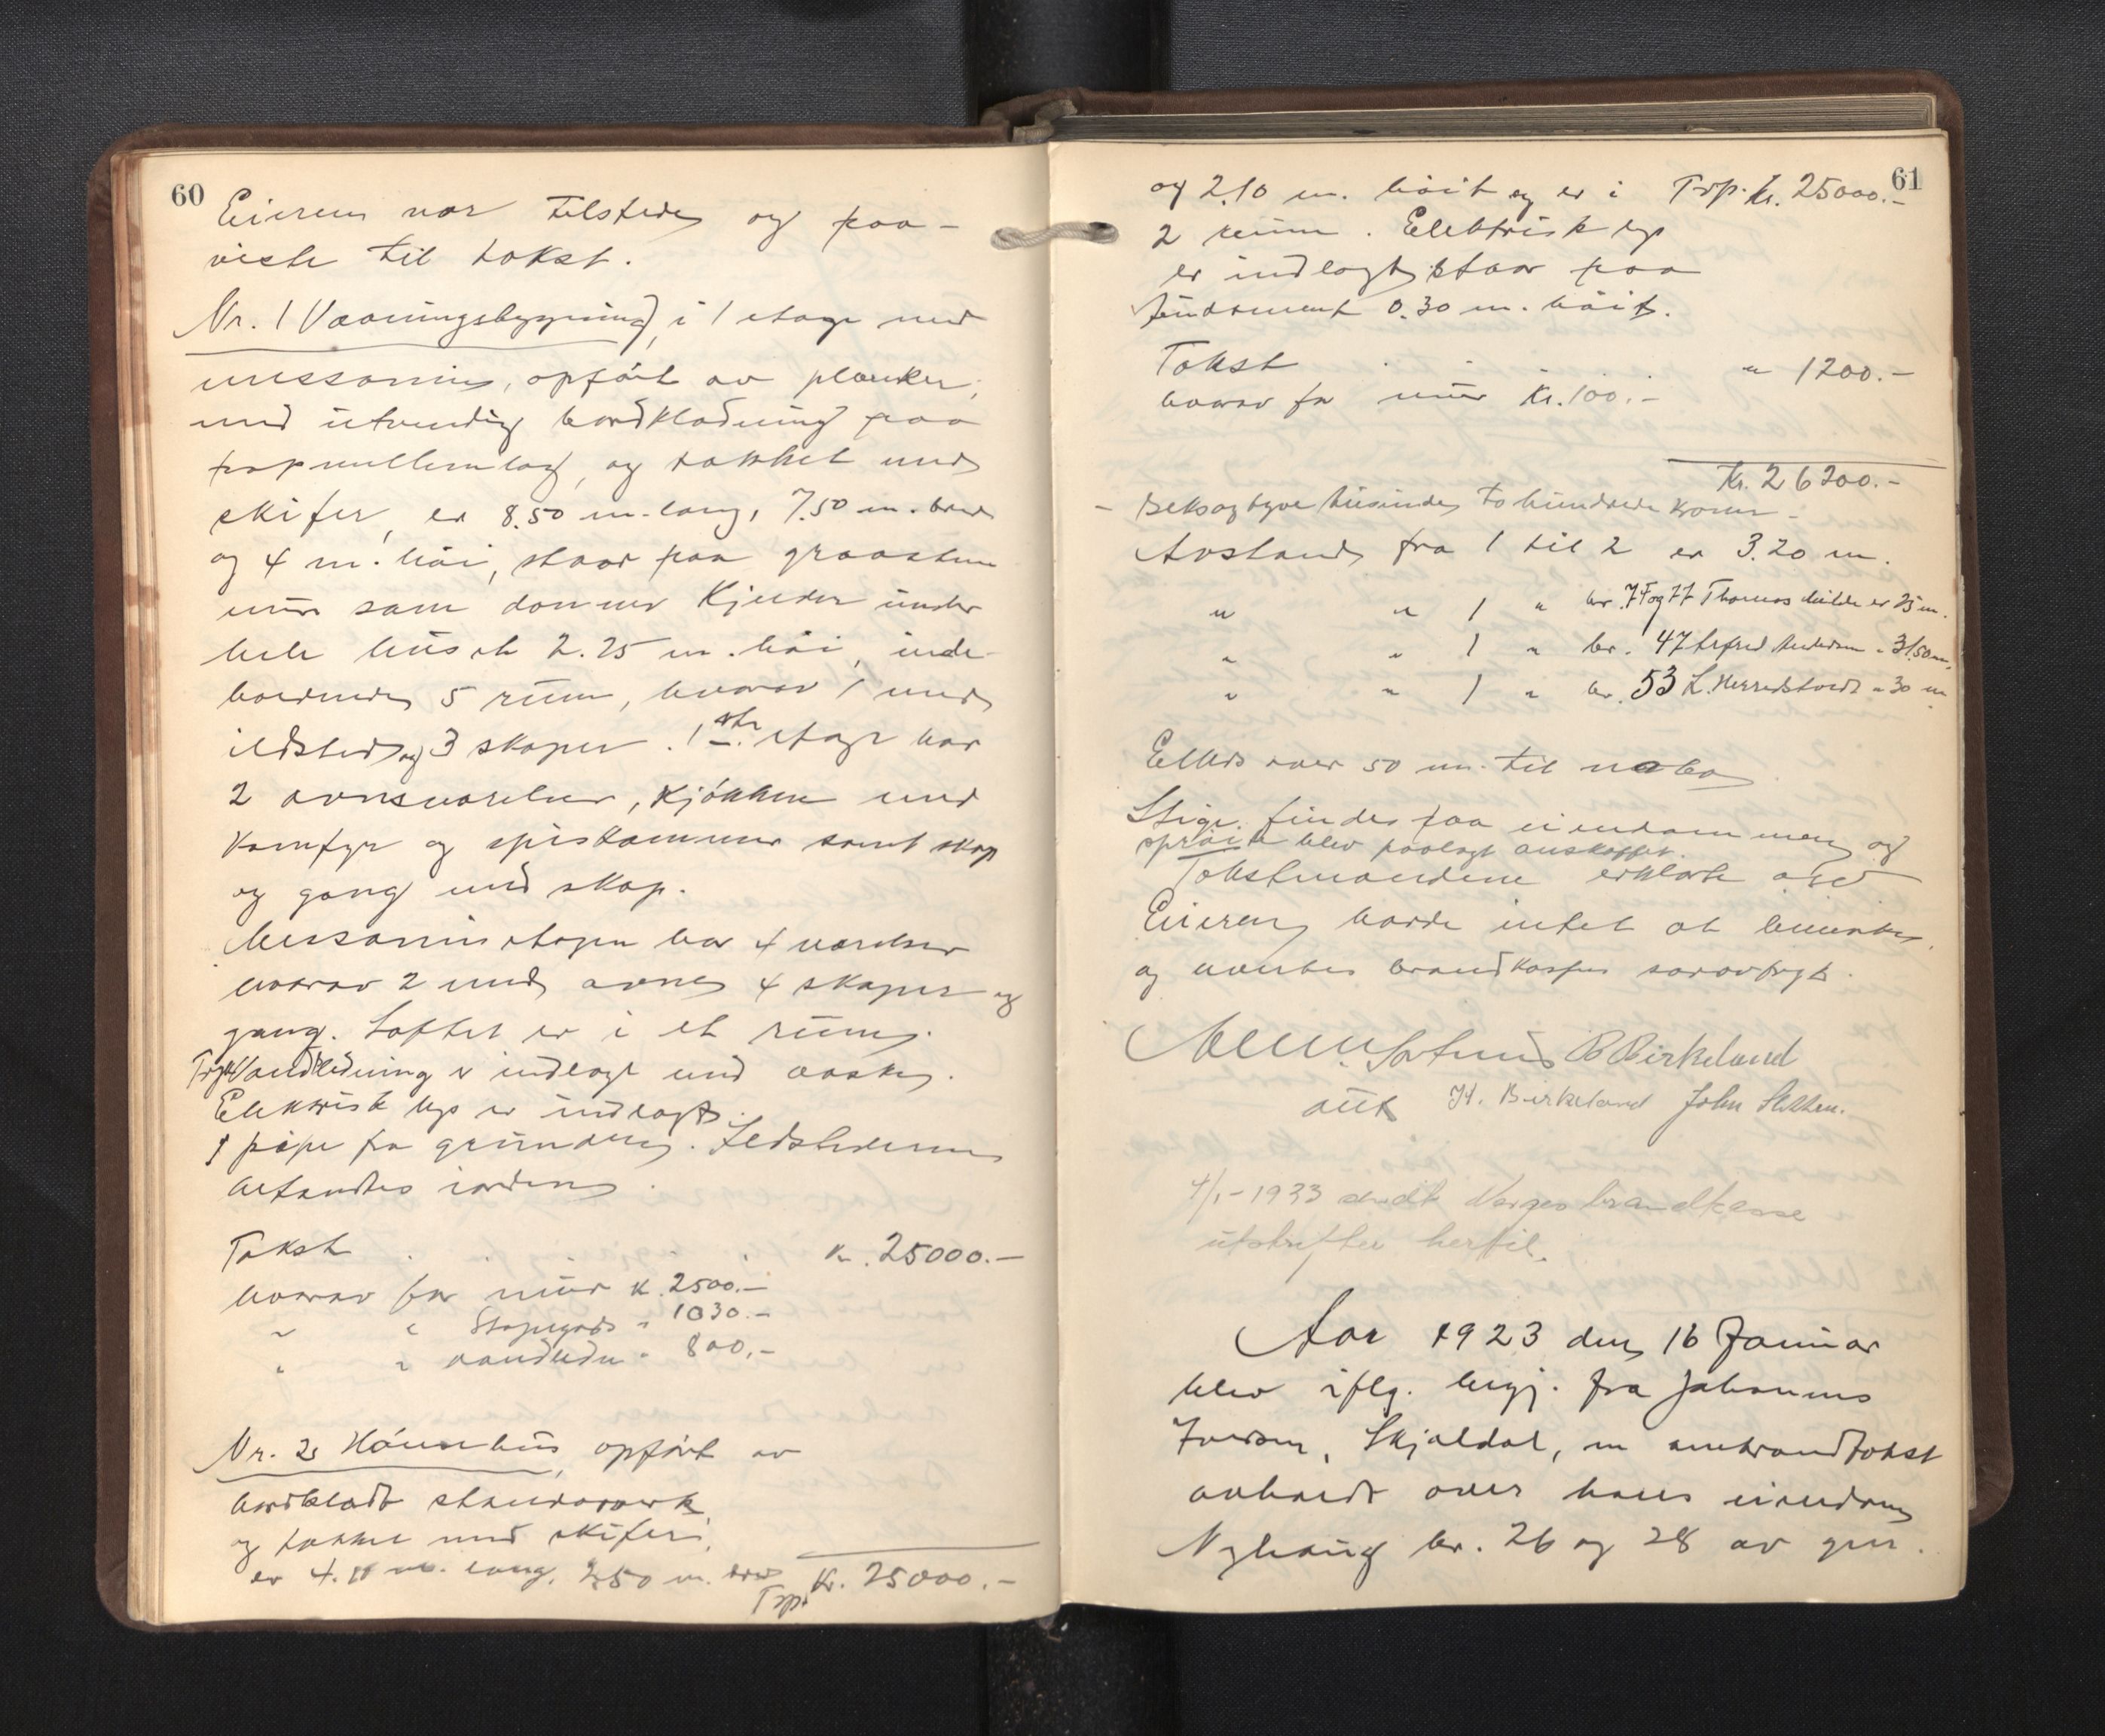 60
Eieren var tilstede og paa-
viste til takst.
Nr. 1 Vaaningsbygning, i 1 etage med
messanin, opført av planker,
med utvendig bordklædning paa
papmellemlag, og tækket med
skifer, er 8.50 m. lang, 7.50 m. bred
og 4 m. høi, staar paa graastens
mur som danner kjelder under
hele huset 2.25 m. høi, inde-
holdende 5 rum, hvorav 1 med
ildsted og 3 skaper. 1ste etage har
2 ovnsværelser, kjøkken med
komfyr og spiskammer samt skap
og gang med skap.
Messanin etagen har 4 værelser
hvorav 2 med ovne, 4 skaper og
gang. Loftet er i et rum.
Vandledning er indlagt med vaske.
Elektrisk lys er indlagt.
1 pipe fra grunden. Ildstederne
befandtes iorden.
Takst . . . . kr. 25000.-
hvorav for mur kr. 2500.-
" " " 1030.-
" " vandledn. " 800.-
Nr. 2 Hønsehus, opført av
bordklædt stenderverk
og tækket med skifer,
er 4. m. lang, 2.50 m. bred
Trsp. Kr. 25000.-
61
og 2.10 m. høit og er i Trsp. kr. 25000.-
2 rum. Elektrisk lys
er indlagt, staar paa
fundament 0.30 m. høit.
Takst " 1200.-
hvorav for mur kr. 100.-
Kr. 26200.-
- Seksogtyve tusinde to hundrede kroner -
Avstand fra 1 til 2 er 3.20 m.
" " 1 " br. 74 og 77 Thomas Milde er 25 m.
" " 1 " br. 47 Alfred Andersen " 31.50 m.
" " 1 " br. 53 L. Herredstveit " 30 m
Ellers over 50 m. til nabo
Stige findes paa eiendommen og
sprøite blev paalagt anskaffet.
Takstmændene erklærte
Eieren havde intet at bemerke
og ventes brandkassens
B Birkeland
H. Birkeland John
4/1-1933 sendt Norges brandkasse
utskrifter hertil.
Aar 1923 den 16 Januar
blev iflg. begj. fra Johannes
Iversen, Skjoldal, en ombrandtakst
avholdt over hans eiendom
Nyhaug br. 26 og 28 av gnr.